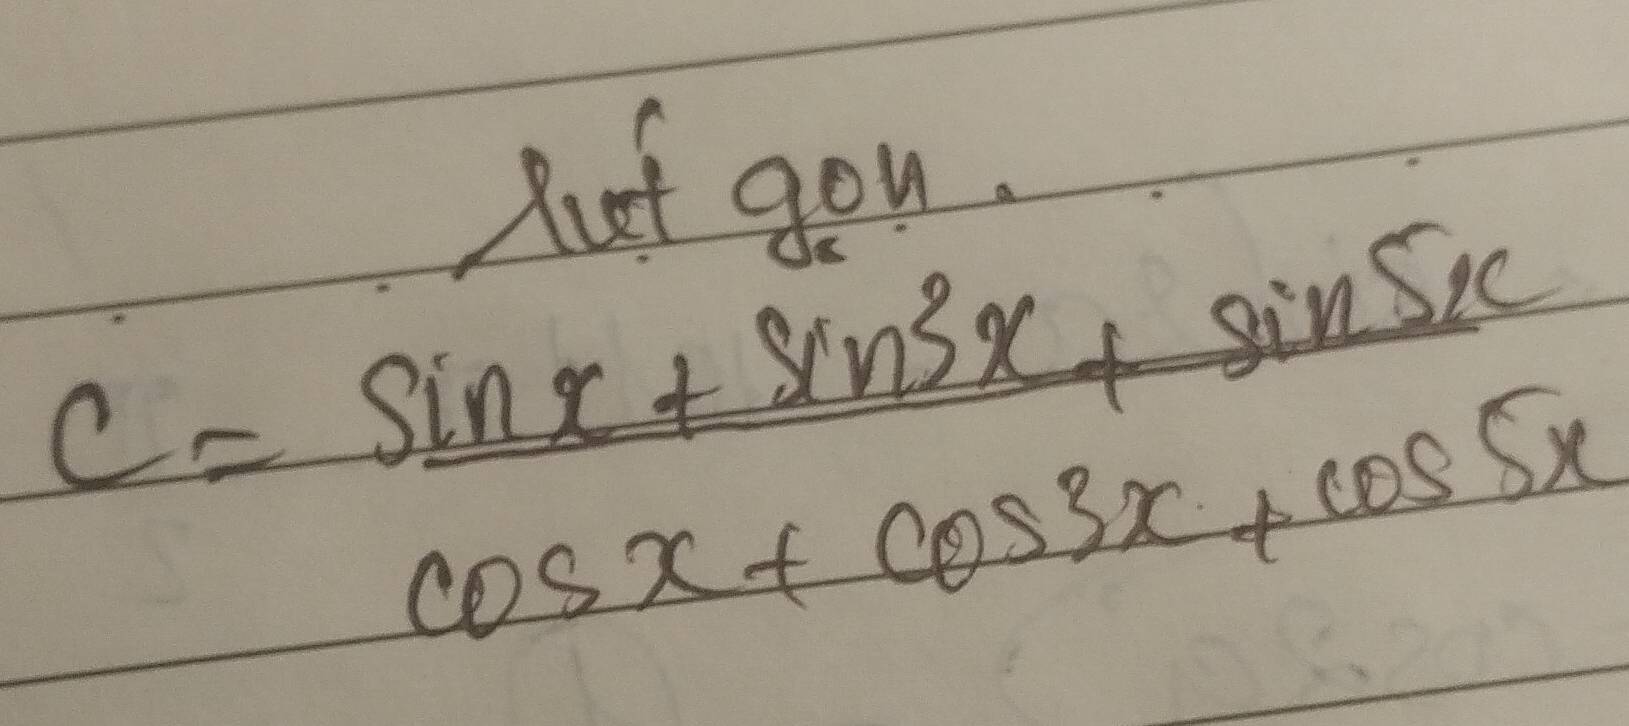 Rút gọn.
C = sinx + sin3x + sin5x
cosx + cos3x + cos5x